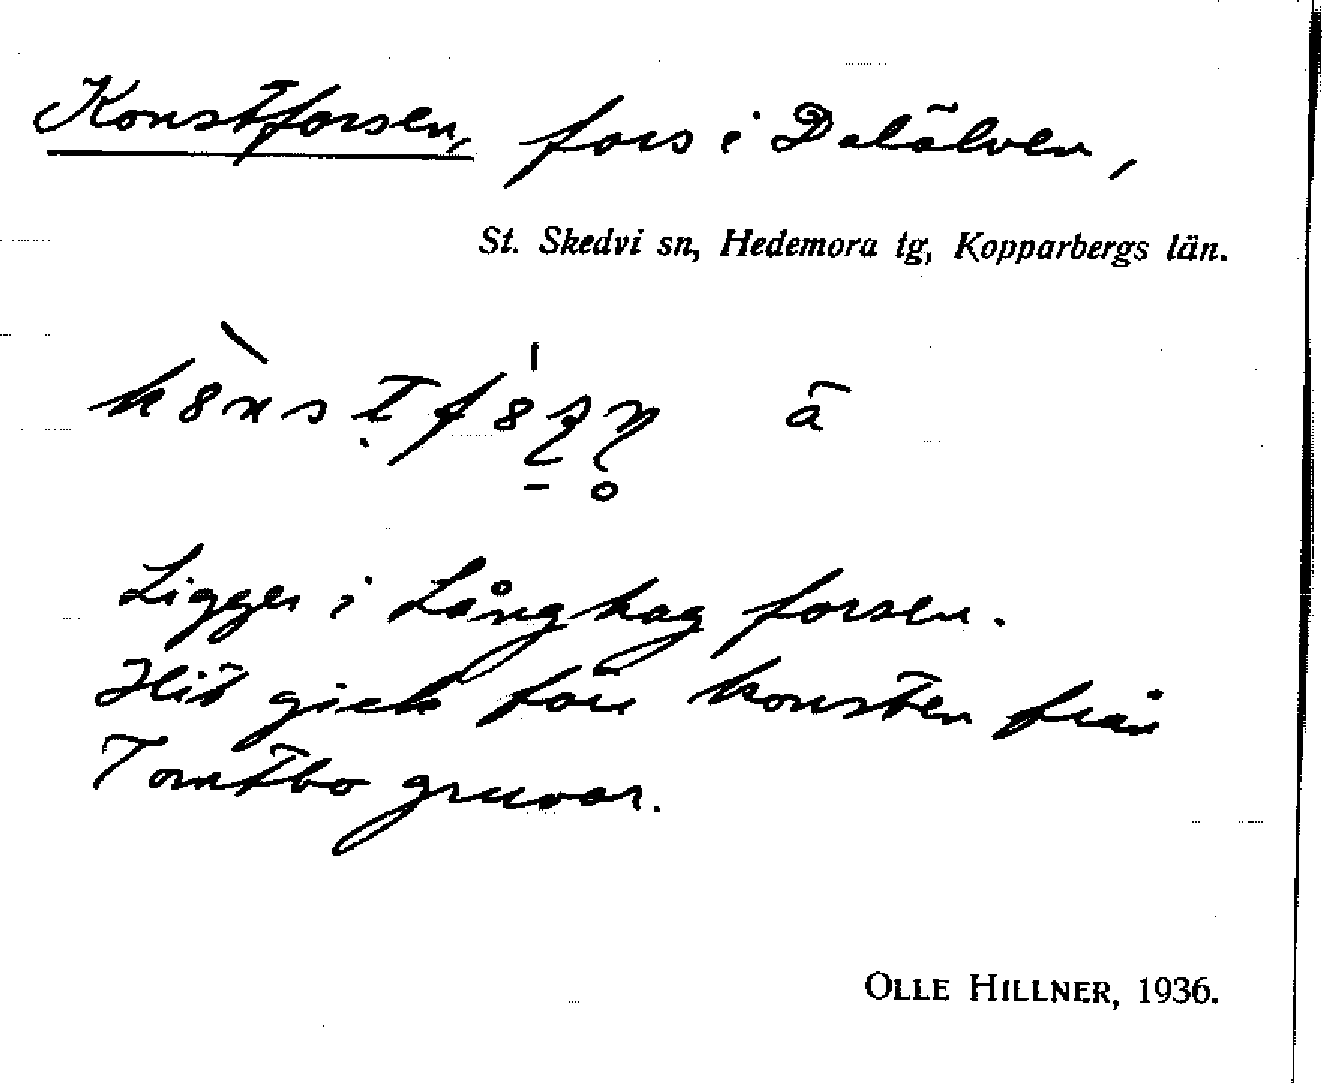 Konstforsen, fors i Dalälven,
St. Skedvi sn, Hedemora tg, Kopparbergs län.
ā
Ligger i Långhag forsen.
Hit gick förr konsten från
Tomtbo gruvor.
OLLE HILLNER, 1936.